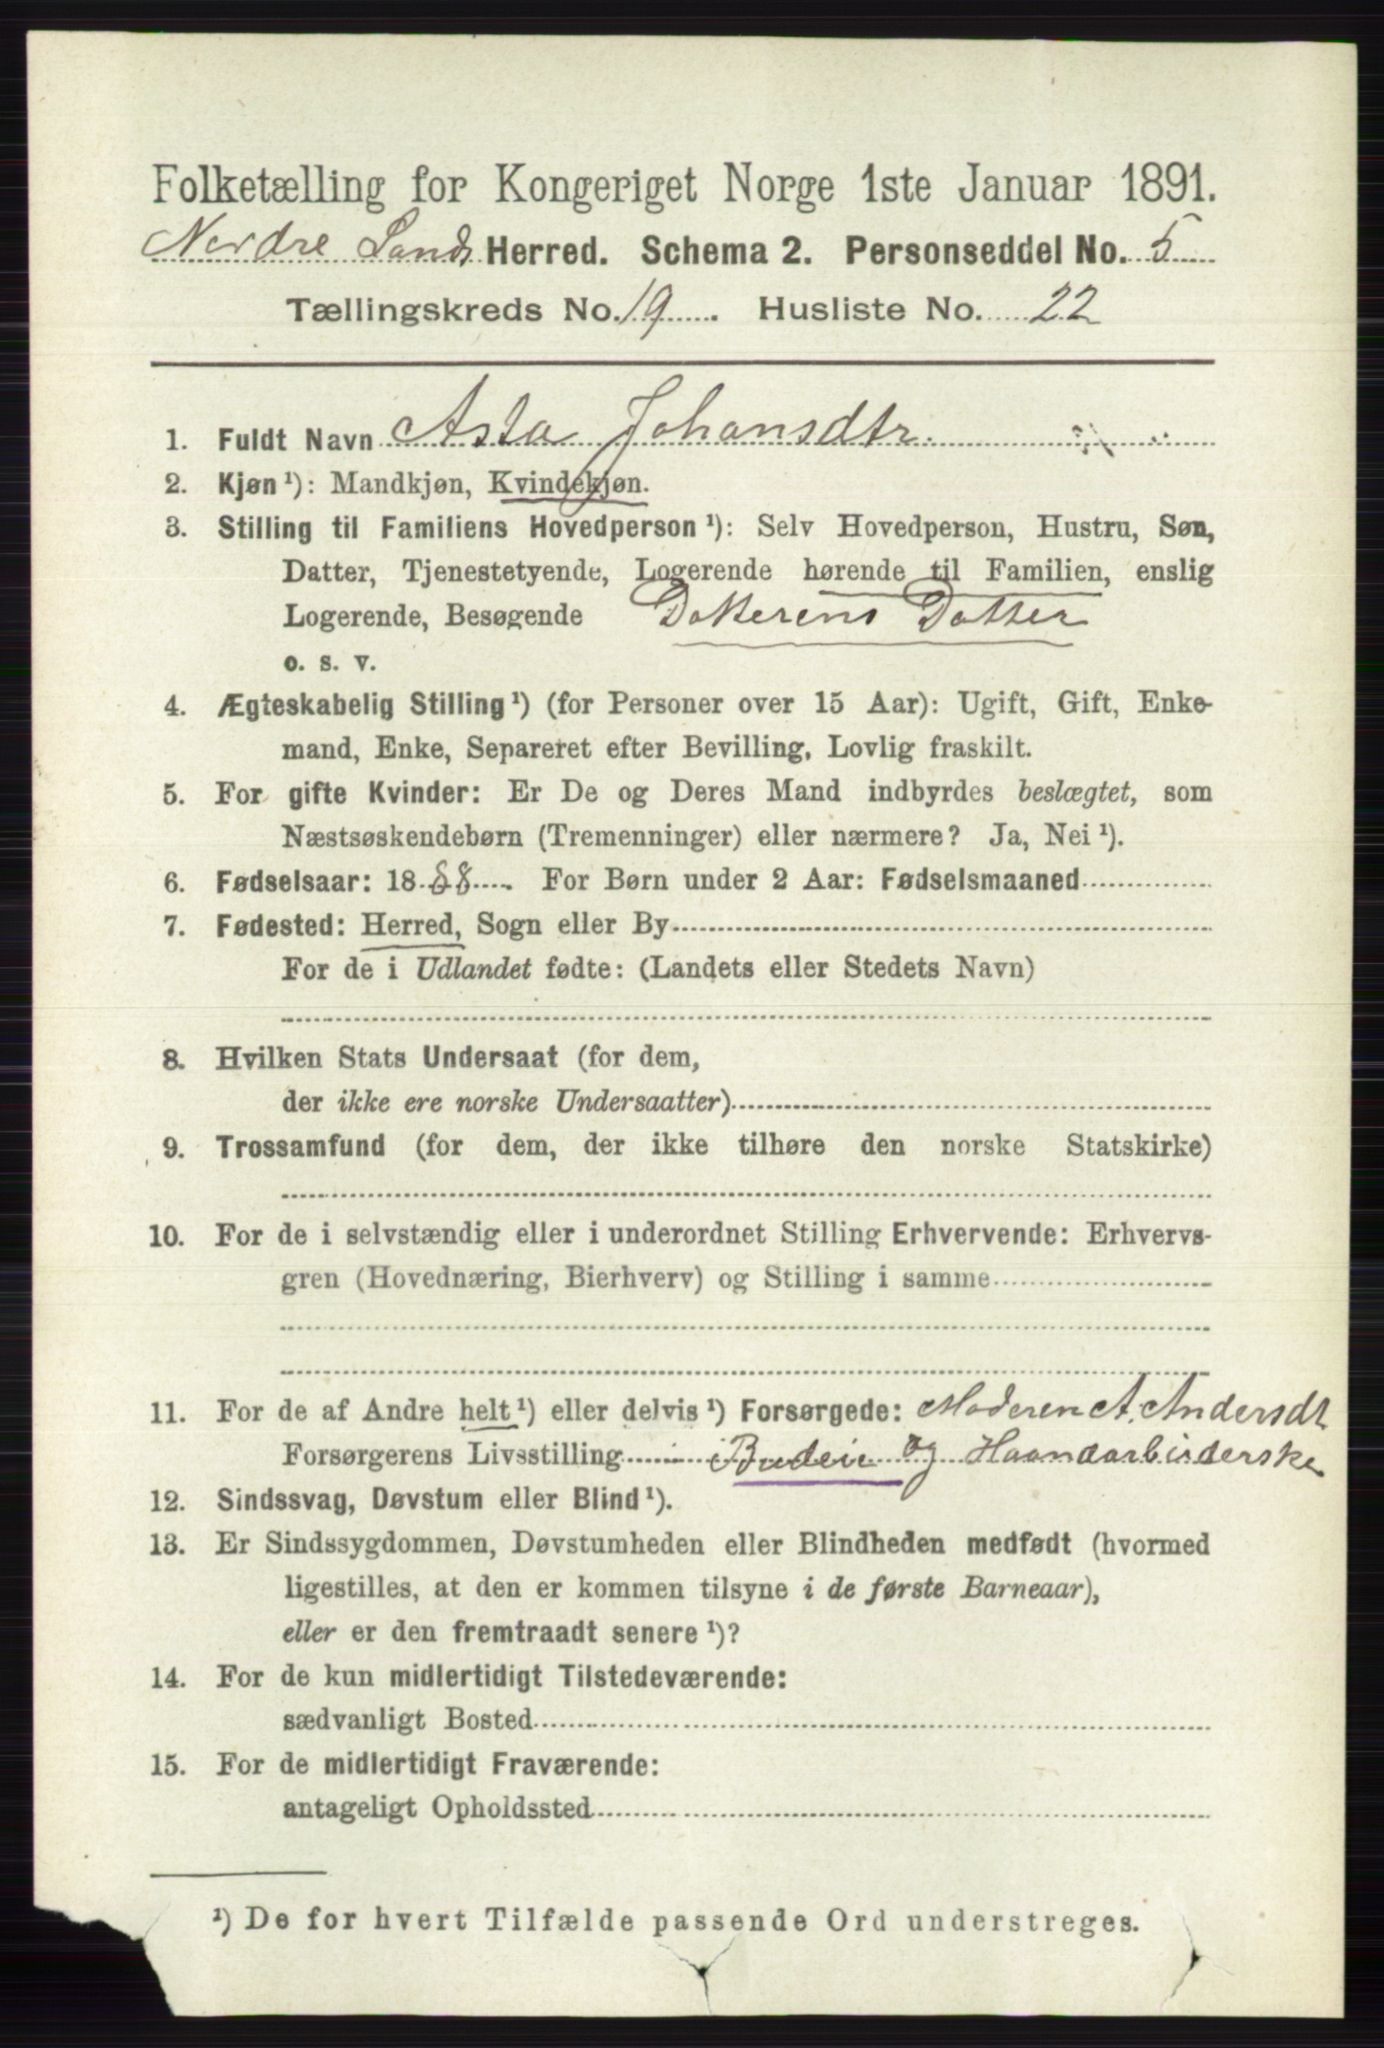 Folketælling for Kongeriget Norge 1ste Januar 1891.
Nordre Lands Herred. Schema 2. Personseddel No. 5
Tællingskreds No. 19. Husliste No. 22
1. Fuldt Navn Asta Johansdtr.
2. Kjøn ¹): Mandkjøn, Kvindekjøn.
3. Stilling til Familiens Hovedperson ¹): Selv Hovedperson, Hustru, Søn,
Datter, Tjenestetyende, Logerende hørende til Familien, enslig
Logerende, Besøgende Datterens Datter
o. s. v.
4. Ægteskabelig Stilling ¹) (for Personer over 15 Aar): Ugift, Gift, Enke-
mand, Enke, Separeret efter Bevilling, Lovlig fraskilt.
5. For gifte Kvinder: Er De og Deres Mand indbyrdes beslægtet, som
Næstsøskendebørn (Tremenninger) eller nærmere? Ja, Nei ¹).
6. Fødselsaar: 1888. For Børn under 2 Aar: Fødselsmaaned
7. Fødested: Herred, Sogn eller By
For de i Udlandet fødte: (Landets eller Stedets Navn)
8. Hvilken Stats Undersaat (for dem,
der ikke ere norske Undersaatter)
9. Trossamfund (for dem, der ikke tilhøre den norske Statskirke)
10. For de i selvstændig eller i underordnet Stilling Erhvervende: Erhvervs-
gren (Hovednæring, Bierhverv) og Stilling i samme
11. For de af Andre helt ¹) eller delvis ¹) Forsørgede: Moderen A. Andersdt
Forsørgerens Livsstilling Budeie og Haandarbeiderske
12. Sindssvag, Døvstum eller Blind ¹).
13. Er Sindssygdommen, Døvstumheden eller Blindheden medfødt (hvormed
ligestilles, at den er kommen tilsyne i de første Barneaar),
eller er den fremtraadt senere ¹)?
14. For de kun midlertidigt Tilstedeværende:
sædvanligt Bosted
15. For de midlertidigt Fraværende:
antageligt Opholdssted
¹) De for hvert Tilfælde passende Ord understreges.